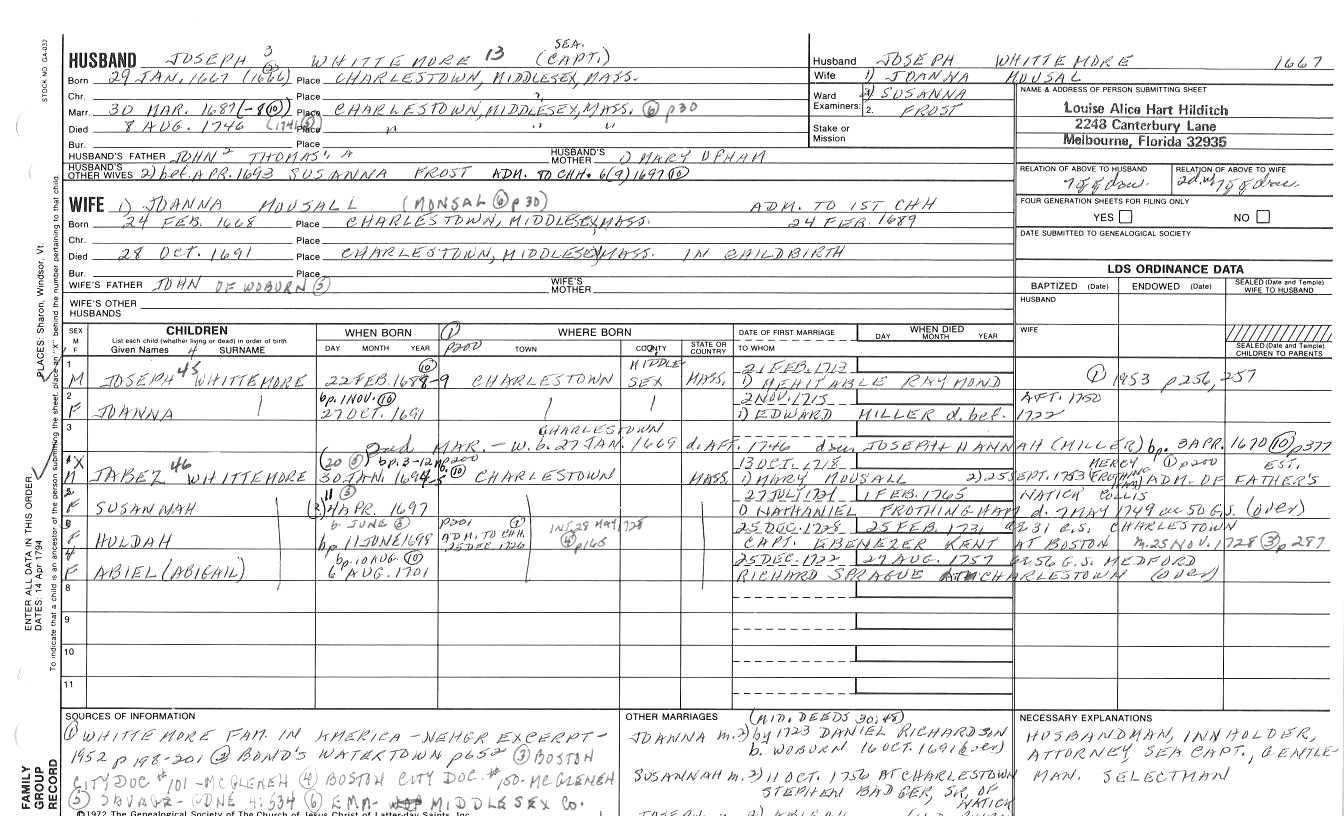 STOCK NO. GA-033
HUSBAND JOSEPH 3 WHITTEMORE 13 SEA. (CAPT.)
Born 29 JAN. 1667 (1666) Place CHARLESTOWN, MIDDLESEX, MASS.
Chr. Place "
Marr. 30 MAR. 1687 (-8 10) Place CHARLESTOWN, MIDDLESEX, MASS. 6 p30
Died 8 AUG. 1746 Place " " "
Bur.
HUSBAND'S FATHER JOHN 2 THOMAS 1, A HUSBAND'S MOTHER 1) MARY UPHAM
HUSBAND'S OTHER WIVES 2) bef. APR. 1693 SUSANNA FROST ADM. TO CHH. 6(9) 1697 10
Husband JOSEPH WHITTEMORE 1667
Wife 1) JOANNA MOUSAL
Ward Examiners: 2) SUSANNA
2. FROST
Stake or Mission
NAME & ADDRESS OF PERSON SUBMITTING SHEET
Louise Alice Hart Hilditch
2248 Canterbury Lane
Melbourne, Florida 32935
RELATION OF ABOVE TO HUSBAND RELATION OF ABOVE TO WIFE
7 g g dau. 2d w 7 g g dau
FOUR GENERATION SHEETS FOR FILING ONLY
YES NO
DATE SUBMITTED TO GENEALOGICAL SOCIETY
WIFE 1) JOANNA MOUSALL (MONSAL 6 p30) ADM. TO 1ST CHH
Born 24 FEB. 1668 Place CHARLESTOWN, MIDDLESEX, MASS. 24 FEB. 1689
Chr. Place
Died 28 OCT. 1691 Place CHARLESTOWN, MIDDLESEX, MASS. IN CHILDBIRTH
Bur. Place
WIFE'S FATHER JOHN OF WOBURN 5 WIFE'S MOTHER
WIFE'S OTHER HUSBANDS
LDS ORDINANCE DATA
BAPTIZED (Date) ENDOWED (Date) SEALED (Date and Temple) WIFE TO HUSBAND
HUSBAND
WIFE
SEALED (Date and Temple) CHILDREN TO PARENTS
SEX M F CHILDREN WHEN BORN 1 WHERE BORN DATE OF FIRST MARRIAGE WHEN DIED
List each child (whether living or dead) in order of birth
Given Names 4 SURNAME DAY MONTH YEAR p200 TOWN COUNTY STATE OR COUNTRY TO WHOM DAY MONTH YEAR
1 M JOSEPH 45 WHITTEMORE 22 FEB. 1688-9 10 CHARLESTOWN MIDDLE-SEX MASS. 21 FEB. 1713
1) MEHITABLE RAYMOND 1 1953 p256, 257
2 F JOANNA bp. 1 NOV. 10 27 OCT. 1691 2 NOV. 1715 AFT. 1750
1) EDWARD MILLER d. bef. 1722
3 CHARLESTOWN
2nd MAR. - W. b. 27 JAN. 1669 d. AFT. 1746 dau JOSEPH + HANNAH (MILLER) bp. 3 APR. 1670 10 p377
4 X M JABEZ 46 WHITTEMORE (20 5) bp. 3-12m p200 30 JAN. 1694-5 10 CHARLESTOWN MASS. 13 OCT. 1718
1) MARY MOUSALL 2) 25 SEPT. 1753 MERCY FROTHINGHAM 1 p200 ADM. OF FATHER'S EST.
F SUSANNAH 11 5 4 APR. 1697 27 JULY 1721 1 FEB. 1765 NATICK COLLIS
1) NATHANIEL FROTHINGHAM d. 7 MAY 1749 æ 50 G.S. (over)
F HULDAH b. JUNE 5 bp 11 JUNE 1698 p201 1 ADM. TO CHH. 25 DEC 1726 INT 28 MAY 1728 4 p165 25 DEC. 1728 25 FEB. 1731 æ 31 G.S. CHARLESTOWN
CAPT. EBENEZER KENT AT BOSTON m. 25 NOV. 1728 3 p287
F ABIEL (ABIGAIL) bp. 10 AUG. 10 6 AUG. 1701 25 DEC. 1722 27 AUG. 1757 æ 56 G.S. MEDFORD
RICHARD SPRAGUE AT CHARLESTOWN (over)
8
9
10
11
SOURCES OF INFORMATION
1 WHITTEMORE FAM. IN AMERICA - NEHGR EXCERPT -
1952 p 198-201 2 BOND'S WATERTOWN p652 3 BOSTON
CITY DOC #101 - MCGLENEN 4 BOSTON CITY DOC. #150 - MCGLENEN
5 SAVAGE - GDNE 4:534 6 EMA- MIDDLESEX CO.
©1972 The Genealogical Society of The Church of Jesus Christ of Latter-day Saints, Inc.
OTHER MARRIAGES (MID. DEEDS 30:48)
JOANNA m. 2) by 1723 DANIEL RICHARDSON
b. WOBURN 16 OCT. 1691 (over)
SUSANNAH m. 2) 11 OCT. 1756 AT CHARLESTOWN
STEPHEN BADGER, SR, OF NATICK
NECESSARY EXPLANATIONS
HUSBANDMAN, INNHOLDER,
ATTORNEY, SEA CAPT., GENTLE-
MAN. SELECTMAN
ENTER ALL DATA IN THIS ORDER.
DATES: 14 Apr 1794
PLACES: Sharon, Windsor, Vt.
To indicate that a child is an ancestor of the person submitting the sheet, place an "X" behind the number pertaining to that child.
FAMILY GROUP RECORD